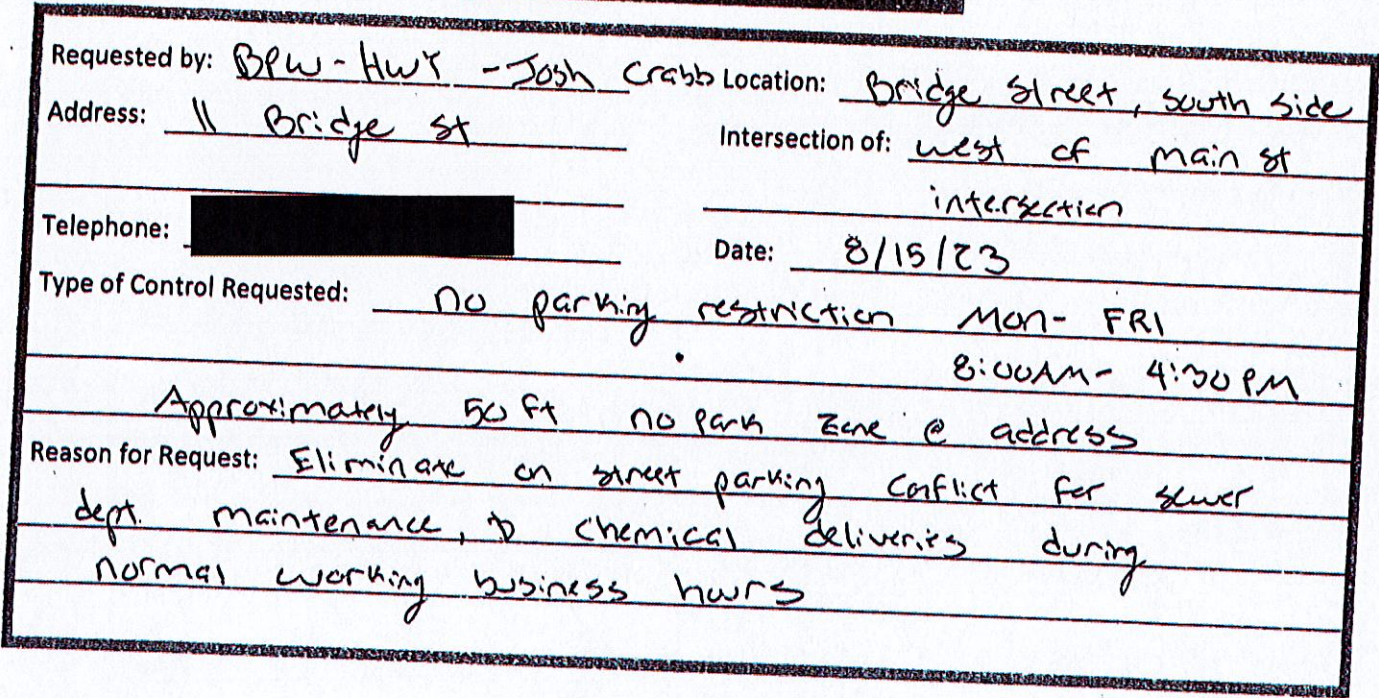 Requested by: BPW - HWY - Josh Crabb Location: Bridge Street, south side
Address: 11 Bridge St Intersection of: west of main st
intersection
Telephone: Date: 8/15/23
Type of Control Requested: no parking restriction Mon- FRI
8:00AM- 4:30 PM
Approximately 50 ft no park zone @ address
Reason for Request: Eliminate on street parking conflict for sewer
dept. maintenance, & chemical deliveries during
normal working business hours